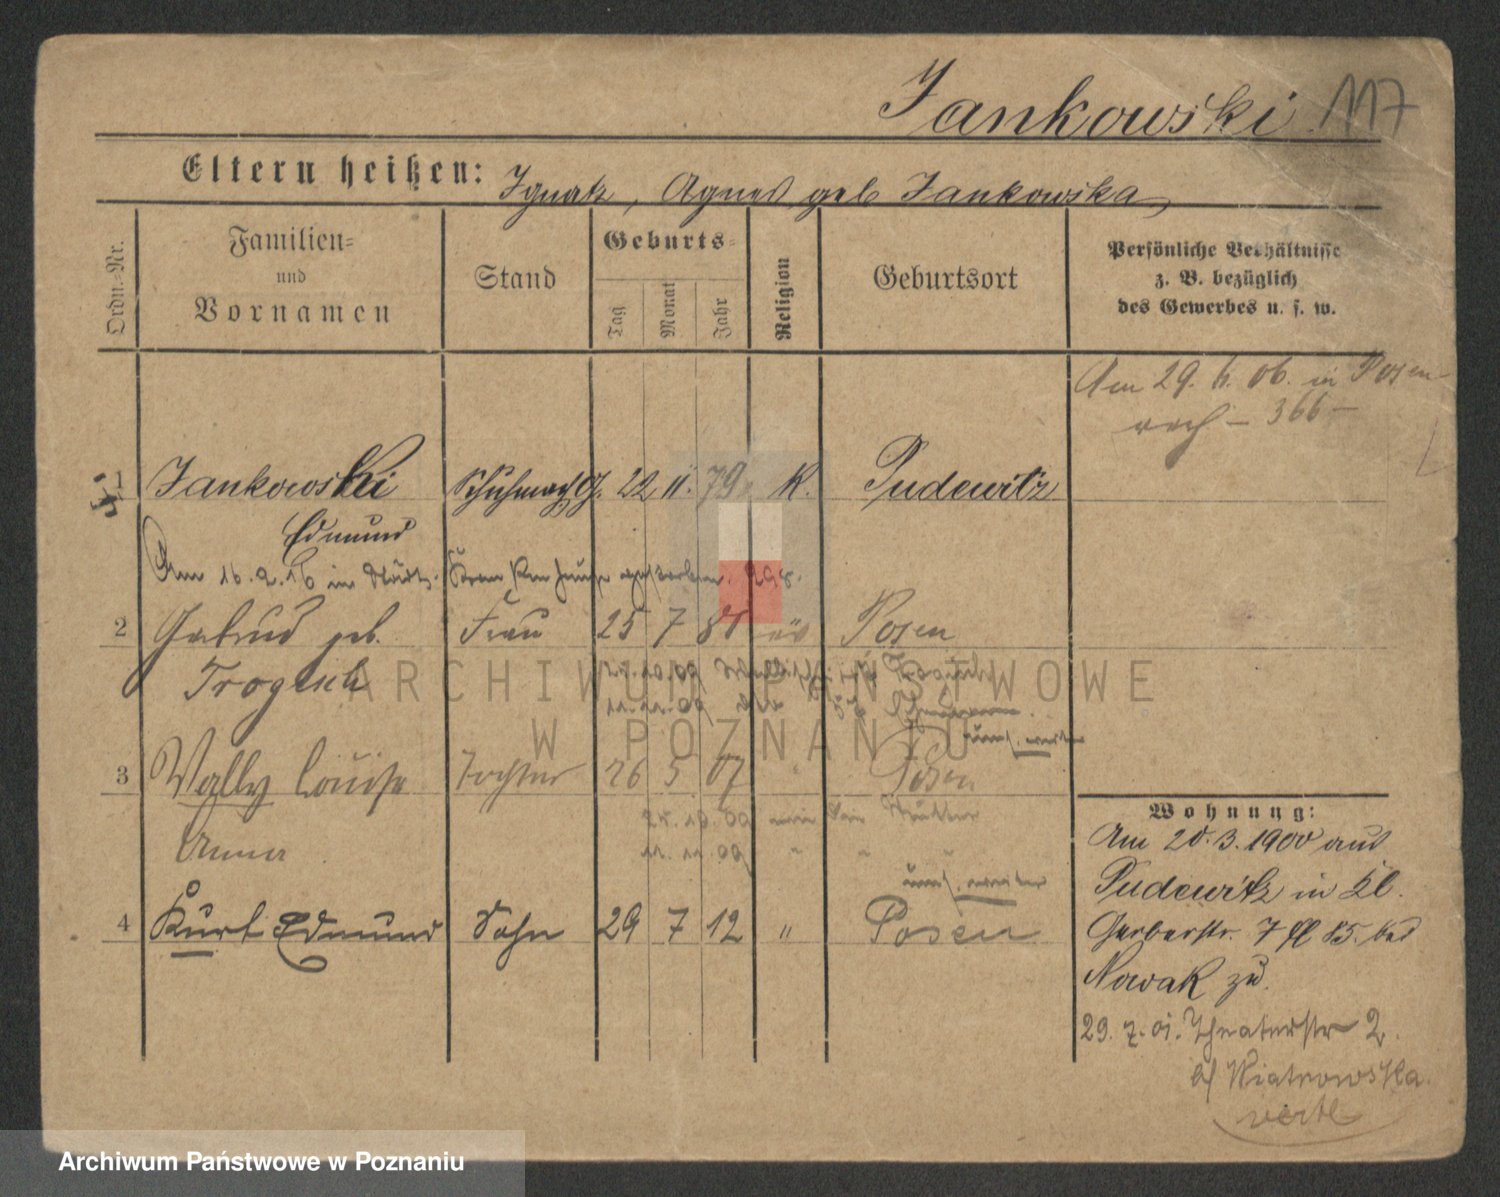 Jankowski 117
Eltern heißen: Ignatz, Agnes geb Jankowska,
Ordn.=Nr.
Familien=
und
Vornamen
Stand
Geburts=
Tag
Monat
Jahr
Religion
Geburtsort
Persönliche Verhältnisse
z. B. bezüglich
des Gewerbes u. s. w.
Am 29. 6. 06. in Posen
— 366 —
1 Jankowski Schuhmachg. 22 11. 79. K. Pudewitz
Edmund
Am 16.2.16 in Städt. Krankenhause gestorben. 298.
2 Gertrud geb. Frau 25 7 81 ev Posen
Trogisch
3 Wally Louise Tochter 26 5 07 " Posen
24.10.09 wie die Mutter
Anna
11.11.09 " "
4 Kurt Edmund Sohn 29 7 12 " Posen
Wohnung:
Am 20.3.1900 aus
Pudewitz in Kl.
Gerberstr. 7 II 85. bei
Nowak zu.
29.7.01. Theaterstr 2.
b/ Wiatrowska.
verte
ARCHIWUM PAŃSTWOWE
W POZNANIU
Archiwum Państwowe w Poznaniu